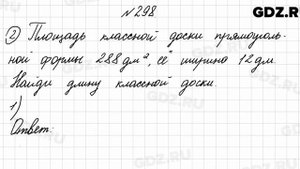 №298
GDZ.R
2) Площадь классной доски прямоуголь-
ной формы 288 дм², её ширина 12 дм.
Найди длину классной доски.
1)
Ответ: